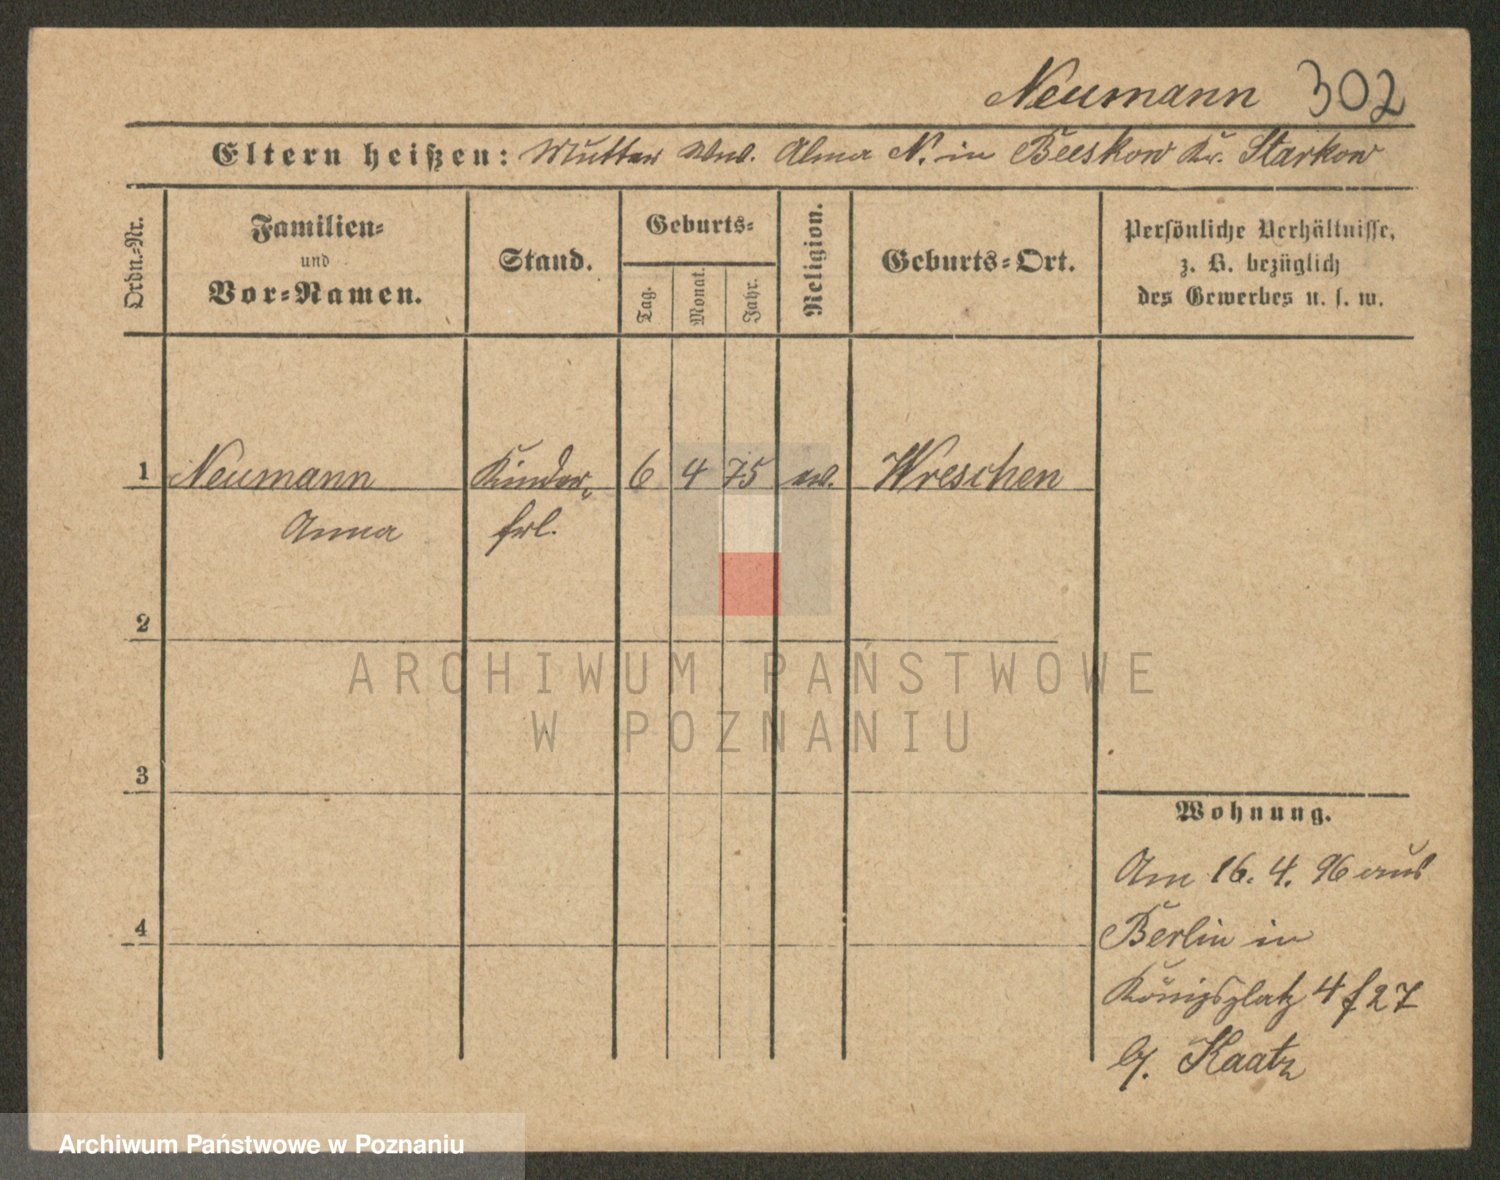 Neumann 302
Eltern heißen: Mutter Ww. Alma N. in Beeskow Kr. Starkow
Ordn.-Nr.
Familien-
und
Vor-Namen.
Stand.
Geburts-
Tag.
Monat.
Jahr.
Religion.
Geburts-Ort.
Persönliche Verhältnisse,
z. B. bezüglich
des Gewerbes u. s. w.
1 Neumann Kinder- 6 4 75 ev. Wreschen
Anna frl.
2
ARCHIWUM PAŃSTWOWE
W POZNANIU
3
Wohnung.
Am 16. 4. 96 aus
4
Berlin in
Königsplatz 4 f 27
b/. Kaatz
Archiwum Państwowe w Poznaniu